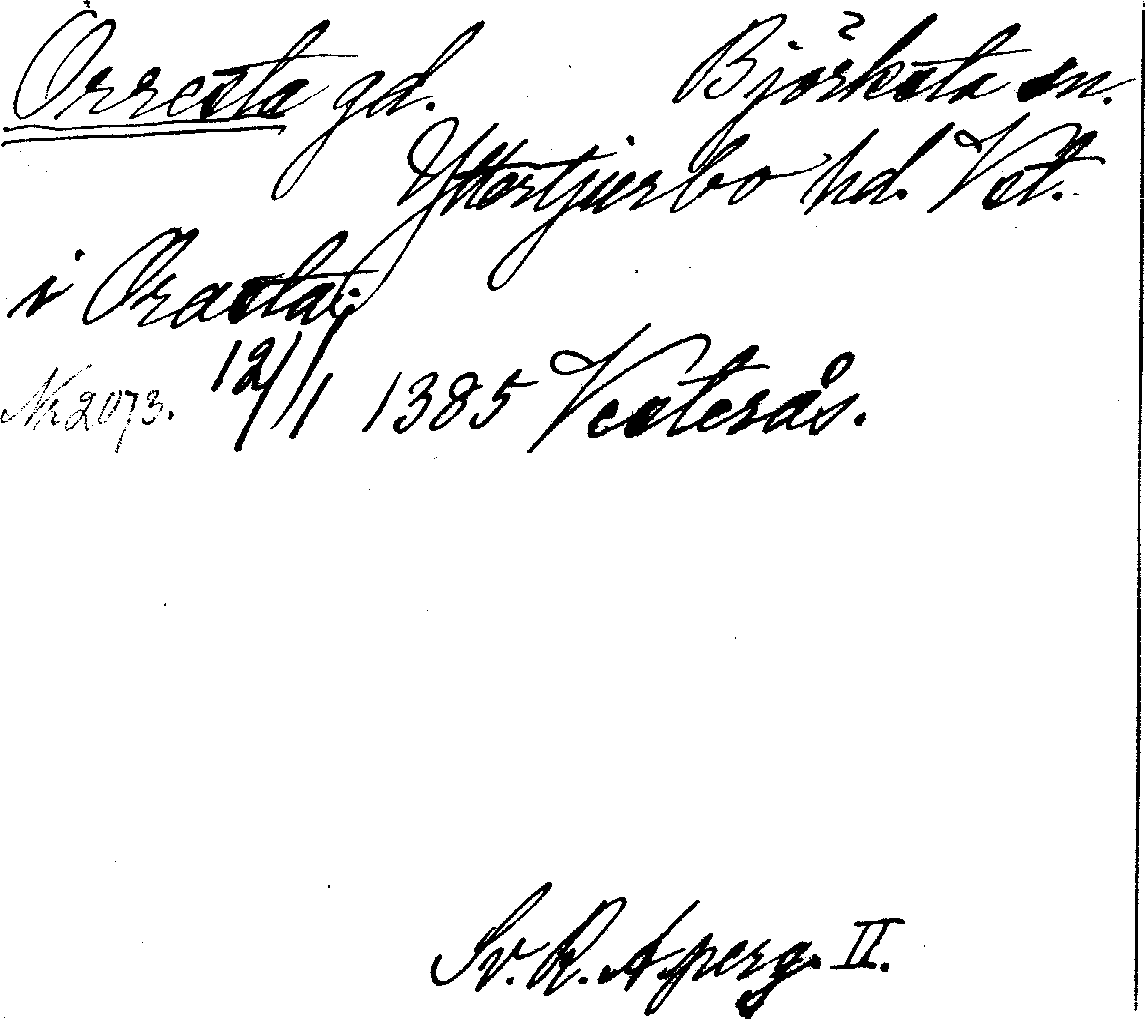 Örresta gd. Björksta sn.
Yttertjurbo hd. Vst.
i Orasta;
Nr 2073. 12/1 1385 Vesterås.
Sv. R. A. perg. II.